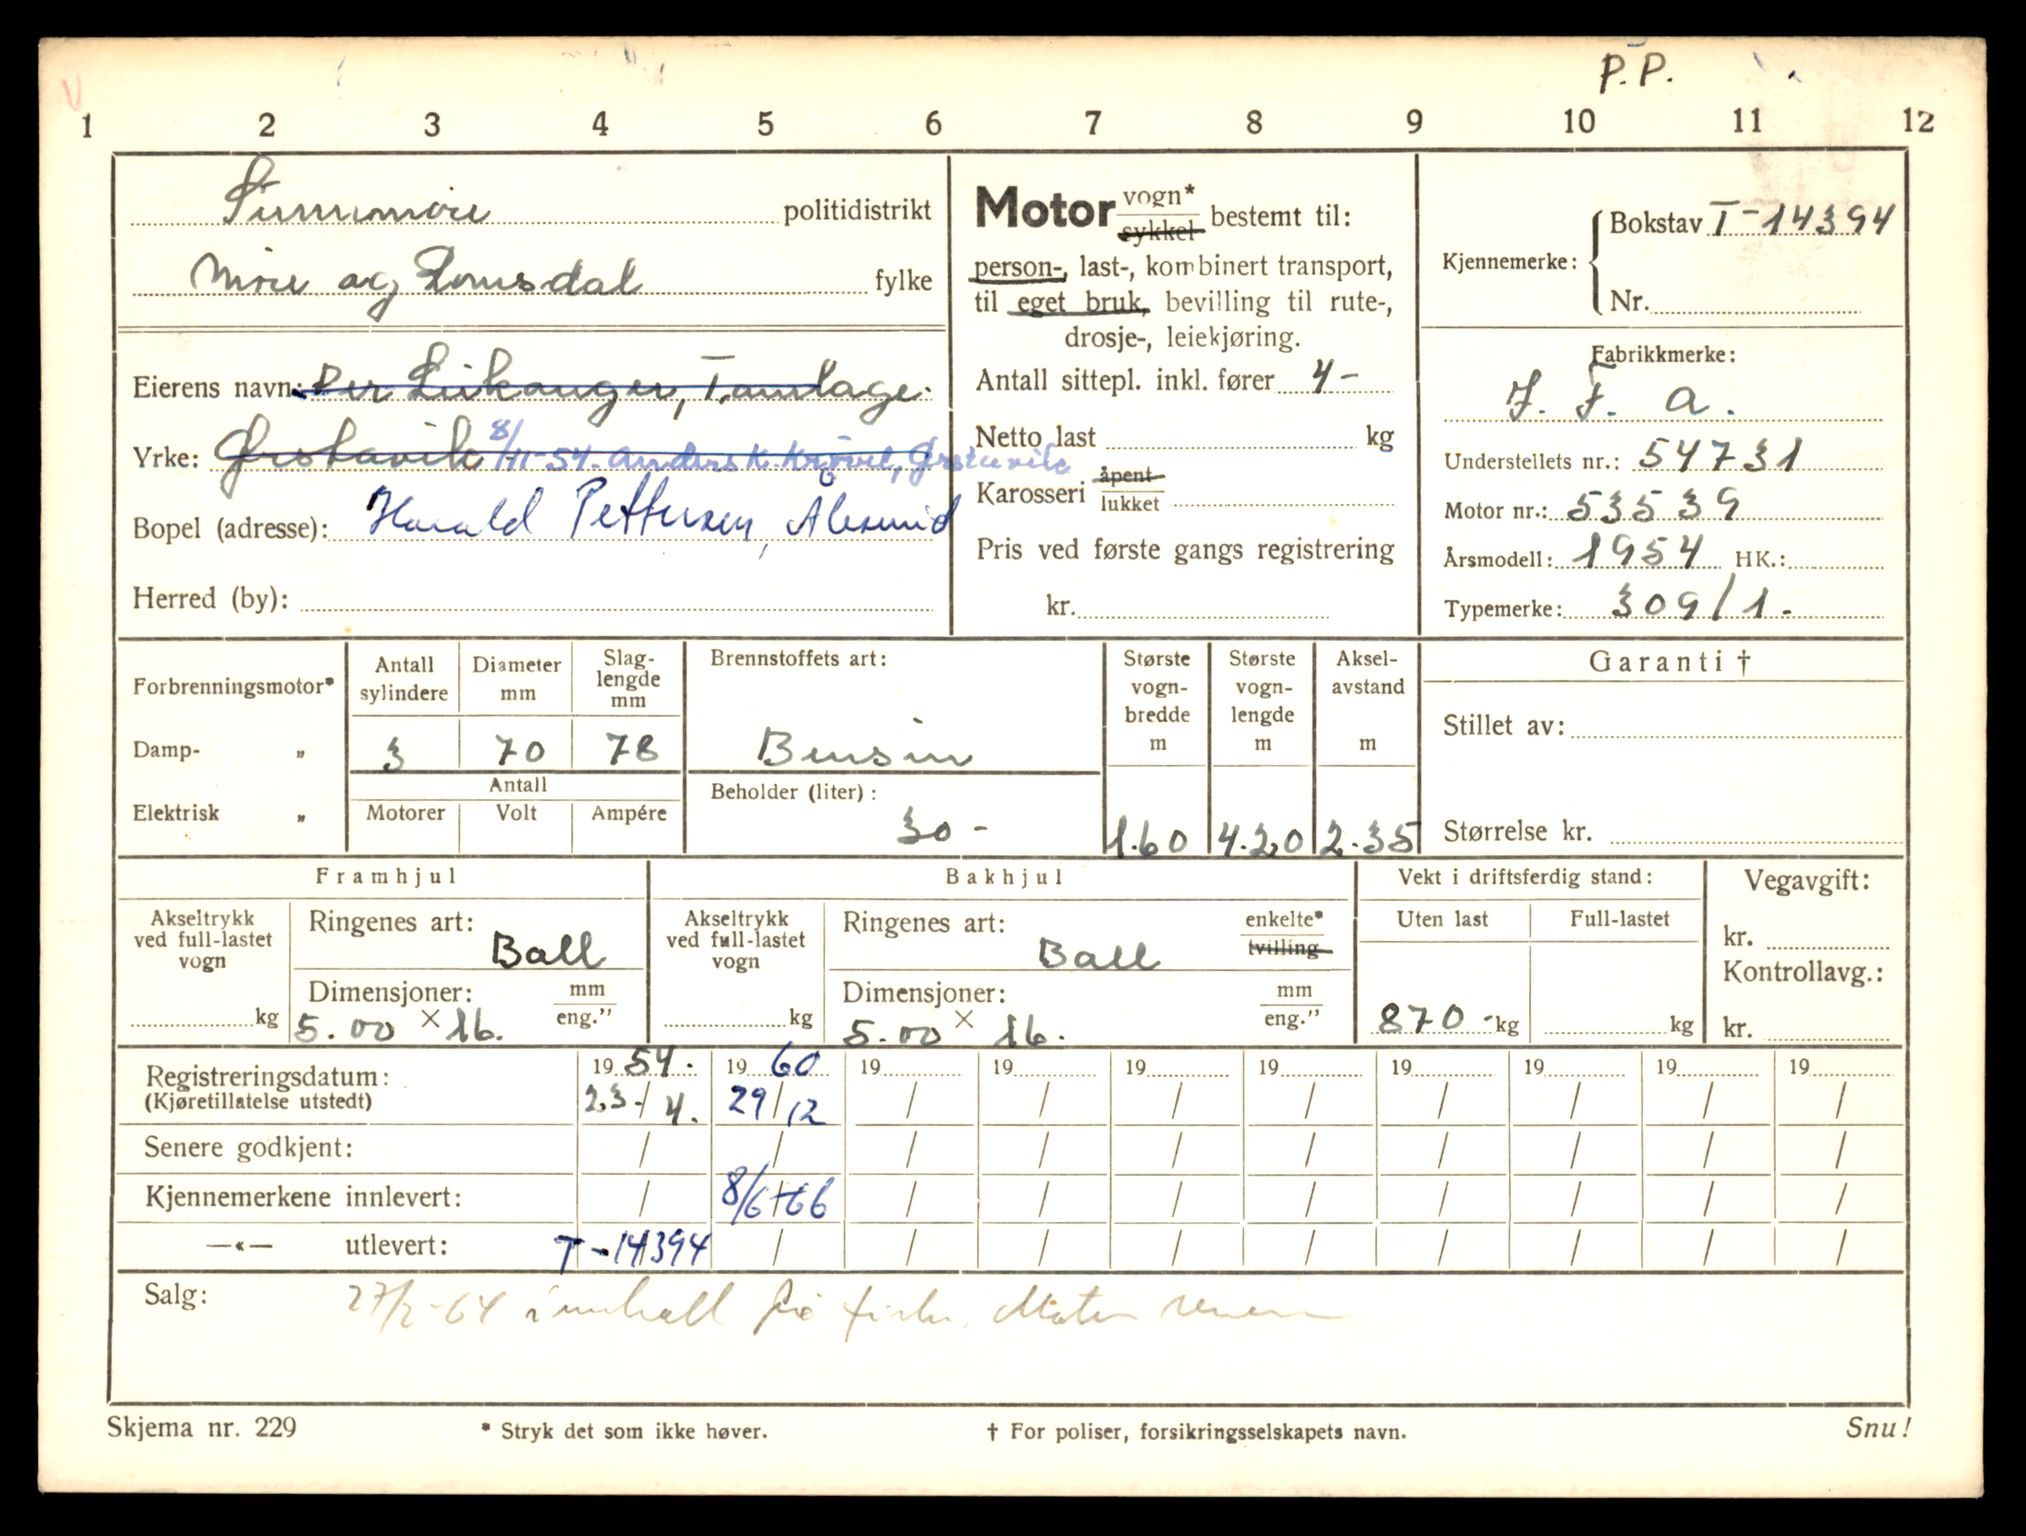 P. P.
1 2 3 4 5 6 7 8 9 10 11 12
Sunnmøre politidistrikt
Møre og Romsdal fylke
Eierens navn: Per Leikanger, Tannlege.
Yrke: Ørstavik 8/11-54. Anders K. Krøvel, Ørstavik
Bopel (adresse): Harald Pettersen, Ålesund
Herred (by):
Motor vogn* sykkel bestemt til:
person-, last-, kombinert transport,
til eget bruk, bevilling til rute-,
drosje-, leiekjøring.
Antall sittepl. inkl. fører 4 -
Netto last kg
Karosseri åpent lukket
Pris ved første gangs registrering
kr.
Kjennemerke: Bokstav T-14394
Nr.
Fabrikkmerke:
I. F. A.
Understellets nr.: 54731
Motor nr.: 53539
Årsmodell: 1954 HK.:
Typemerke: 309/1-
Forbrenningsmotor*
Damp- „
Elektrisk „
Antall sylindere
3
Diameter mm
70
Slaglengde mm
78
Antall
Motorer Volt Ampére
Brennstoffets art:
Bensin
Beholder (liter):
30 -
Største vognbredde m
1.60
Største vognlengde m
4.20
Akselavstand m
2.35
Garanti †
Stillet av:
Størrelse kr.
Framhjul
Akseltrykk ved full-lastet vogn
kg
Ringenes art:
Ball
Dimensjoner: mm eng."
5.00 x 16.
Bakhjul
Akseltrykk ved full-lastet vogn
kg
Ringenes art: enkelte* tvilling
Ball
Dimensjoner: mm eng."
5.00 x 16.
Vekt i driftsferdig stand:
Uten last Full-lastet
870 - kg kg
Vegavgift:
kr.
Kontrollavg.:
kr.
19 54. 19 60 19 19 19 19 19 19 19 19
Registreringsdatum: 23./4. 29/12 / / / / / / / /
(Kjøretillatelse utstedt)
Senere godkjent: / / / / / / / / / /
Kjennemerkene innlevert: / 8/6-66 / / / / / / / /
—«— utlevert: T-14394 / / / / / / / / /
Salg: 27/2-64
Skjema nr. 229
* Stryk det som ikke høver.
† For poliser, forsikringsselskapets navn.
Snu!